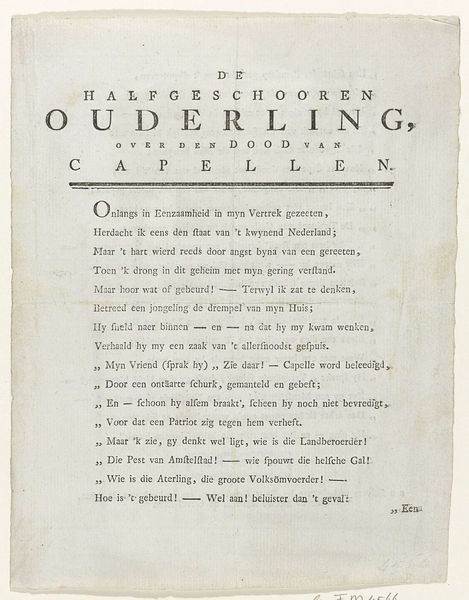 DE
HALFGESCHOOREN
OUDERLING,
OVER DEN DOOD VAN
CAPELLEN.
Onlangs in Eenzaamheid in myn Vertrek gezeeten,
Herdacht ik eens den ſtaat van 't kwynend Nederland;
Maar 't hart wierd reeds door angst byna van een gereeten,
Toen 'k drong in dit geheim met myn gering verſtand.
Maar hoor wat of gebeurd! — Terwyl ik zat te denken,
Betreed een jongeling de drempel van myn Huis;
Hy ſneld naer binnen — en — na dat hy my kwam wenken,
Verhaald hy my een zaak van 't allerſnoodst geſpuis.
„ Myn Vriend (ſprak hy) „ Zie daar! — Capelle word beleedigd,
„ Door een ontäarte ſchurk, gemanteld en gebeft;
„ En — ſchoon hy alſem braakt', ſcheen hy noch niet bevredigt,
„ Voor dat een Patriot zig tegen hem verheft.
„ Maar 'k zie, gy denkt wel ligt, wie is die Landberoerder!
„ Die Pest van Amſtelſtad! — wie ſpouwt die helſche Gal!
„ Wie is die Aterling, die groote Volksömvoerder! —
Hoe is 't gebeurd! — Wel aan! beluister dan 't geval:
„ Een